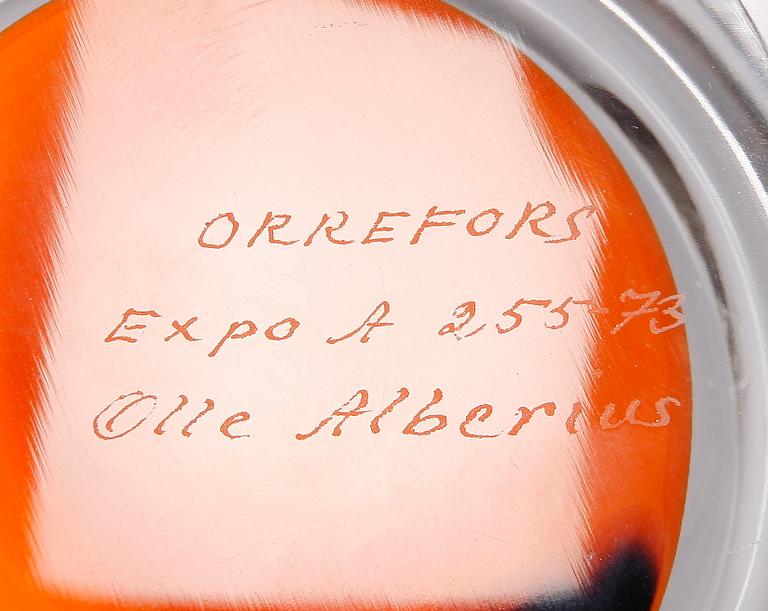 ORREFORS
Expo A 255-73
Olle Alberius